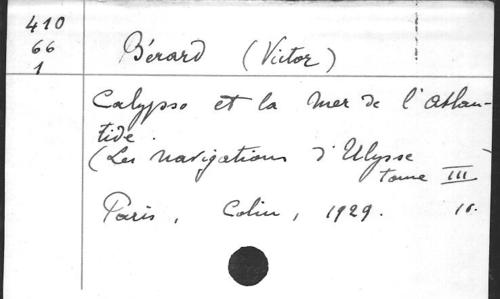 410
66
1
Bérard (Victor)
Calypso et la mer de l'Atlan-
tide.
(Les navigations d'Ulysse
tome III
Paris, Colin, 1929.